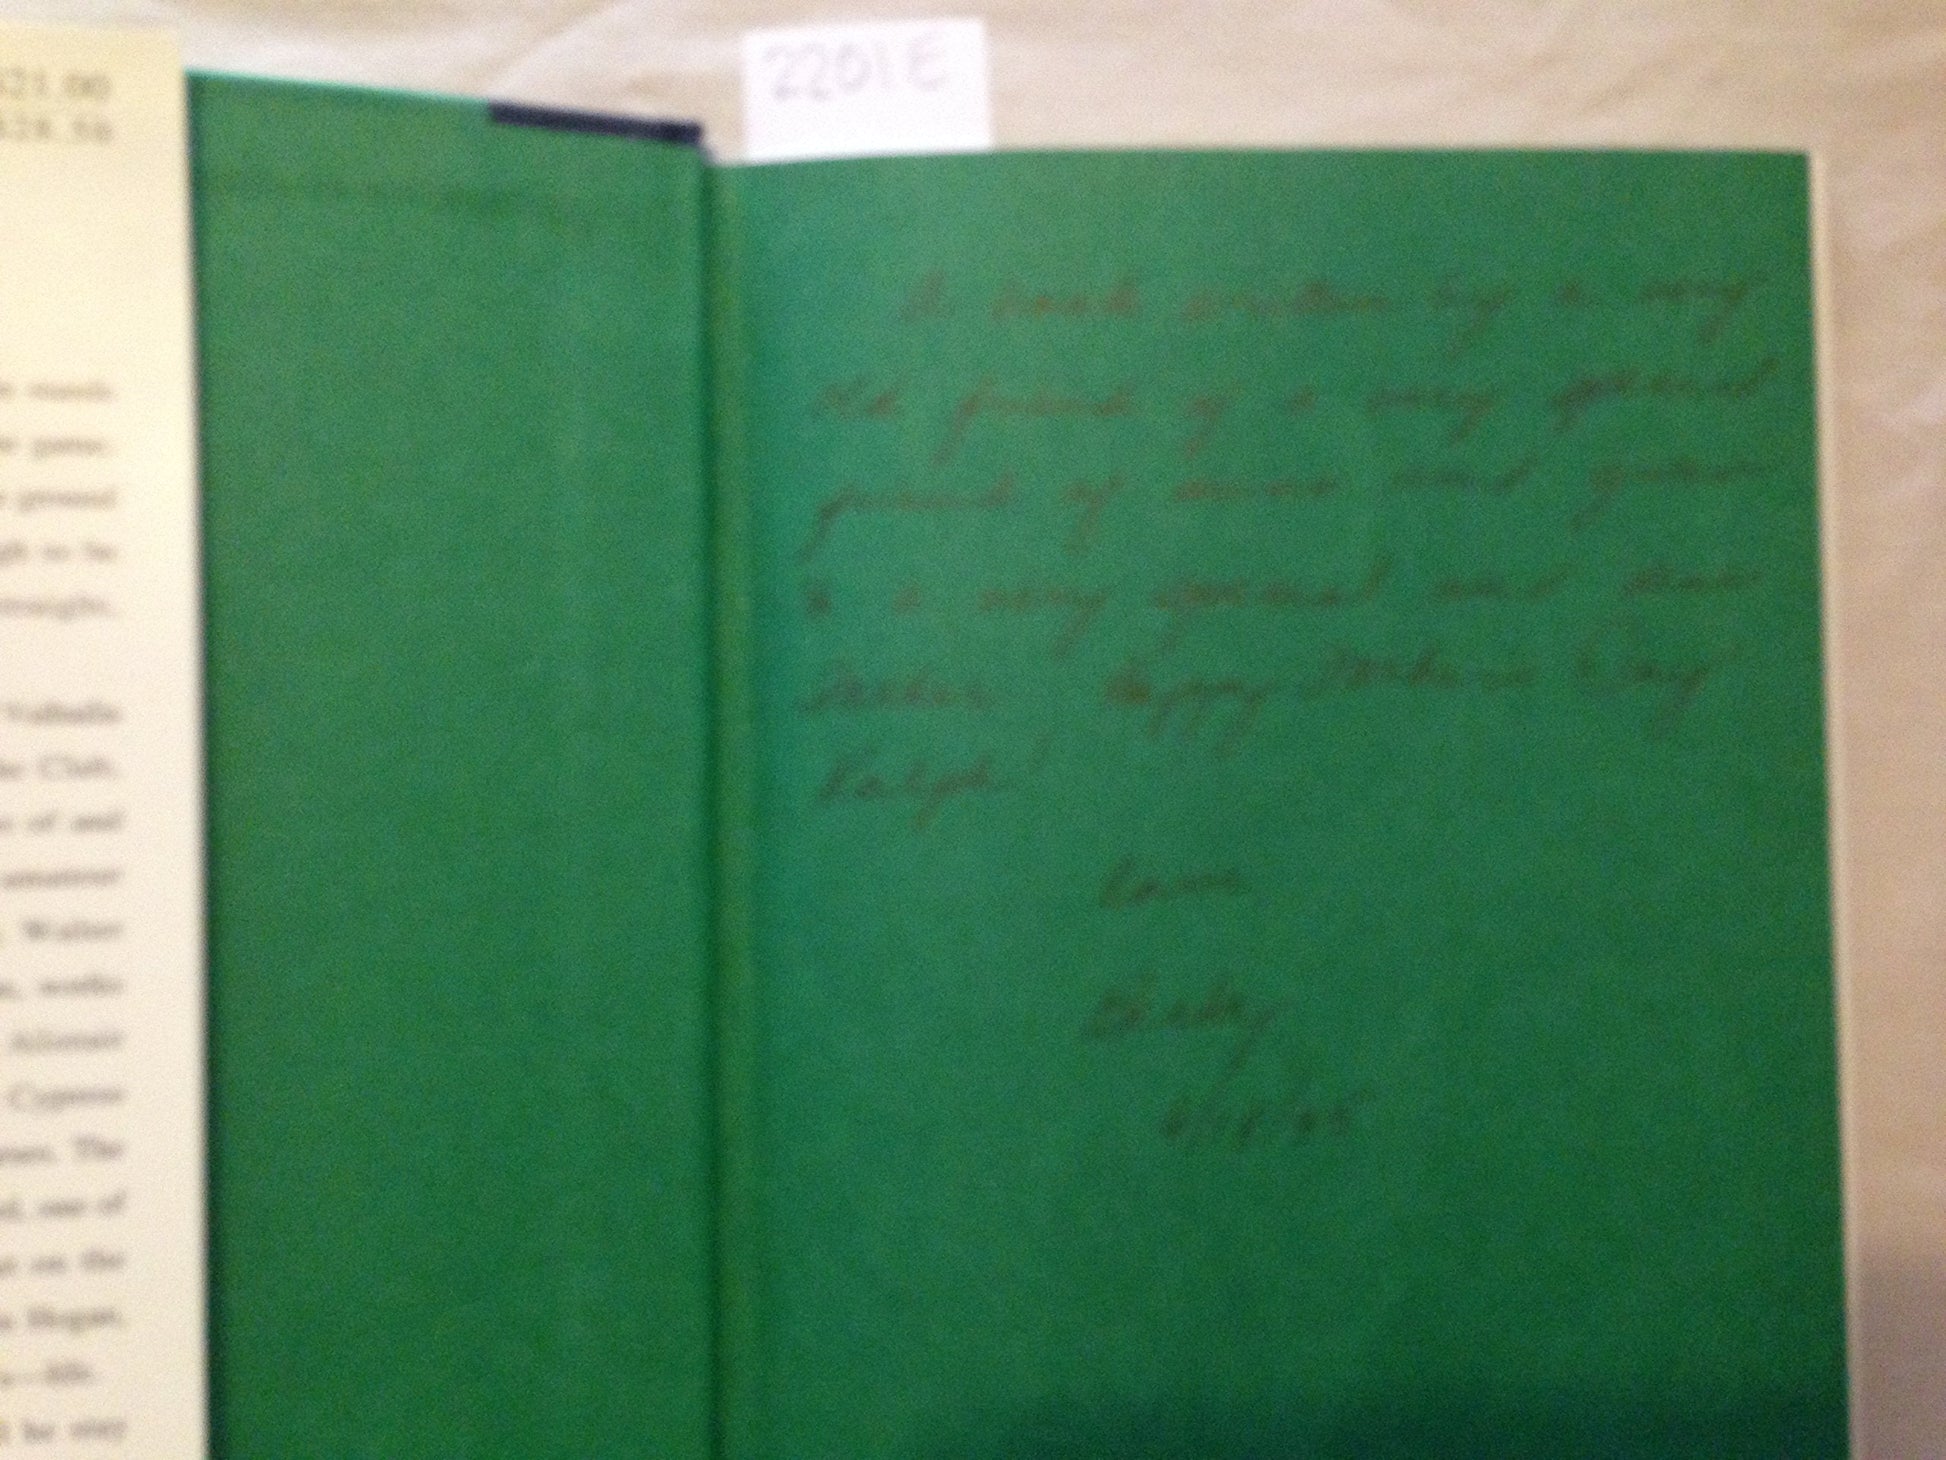 21.00
28.50
game.
ground
to be
straight,
Valhalla
Club,
of and
amateur
Walter
works
Alistair
Cypress
The
one of
on the
Hogan,
he may
2201E
A book written by a very
old friend of a very special
friend of mine and given
to a very special and dear
father. Happy Father's Day
Ralph!
Love
6/18/95